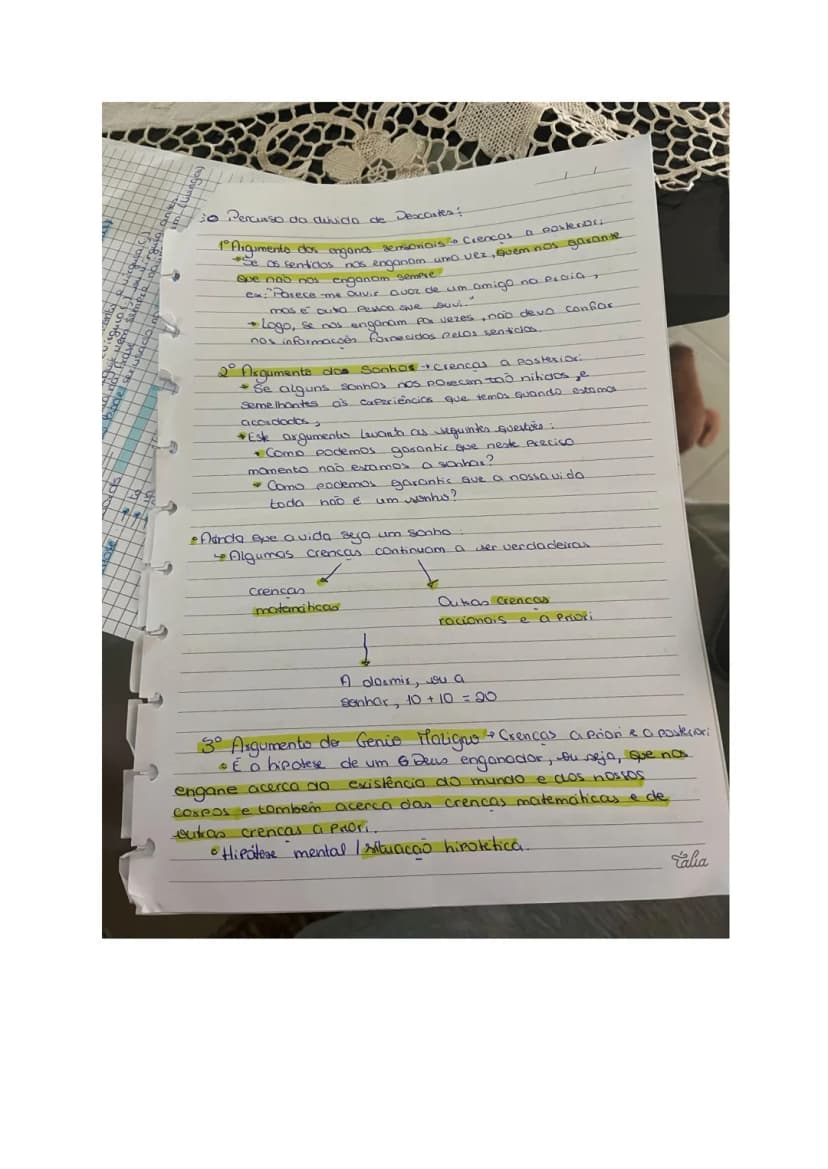 O Percurso da dúvida de Descartes:
1º Argumento dos enganos sensoriais → Crenças a posteriori
Se os sentidos nos enganam uma vez, quem nos garante
que não nos enganam sempre
ex: "Parece-me ouvir a voz de um amigo na praia,
mas é outra pessoa que ouvi."
→ Logo, se nos enganam por vezes, não devo confiar
nas informações fornecidas pelos sentidos.
2º Argumento dos Sonhos → crenças a posteriori
Se alguns sonhos nos parecem tão nítidos, e
semelhantes às experiências que temos quando estamos
acordados,
Este argumento levanta as seguintes questões:
Como podemos garantir que neste preciso
momento não estamos a sonhar?
Como podemos garantir que a nossa vida
toda não é um sonho?
Ainda que a vida seja um sonho
↳ Algumas crenças continuam a ser verdadeiras
crenças
matemáticas
Outras crenças
racionais e a priori
A dormir, ou a
sonhar, 10 + 10 = 20
3º Argumento do Genio Maligno → Crenças a priori e a posteriori
É a hipotese de um Deus enganador, ou seja, que nos
engane acerca da existência do mundo e dos nossos
corpos e também acerca das crenças matemáticas e de
outras crenças a priori.
Hipótese mental / situação hipotética.
Tália